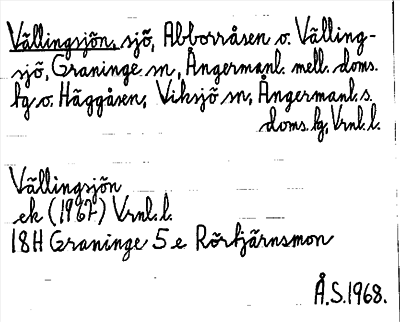 Vällingsjön, sjö, Abborråsen o. Välling-
sjö, Graninge sn, Ångermanl. mell. doms.
fg o. Häggåsen, Viksjö sn, Ångermanl. s.
doms. fg, Vrnl. l.
Vällingsjön
ek (1967) Vrnl. l.
18H Graninge 5 e Rörtjärnsmon
Å.S. 1968.